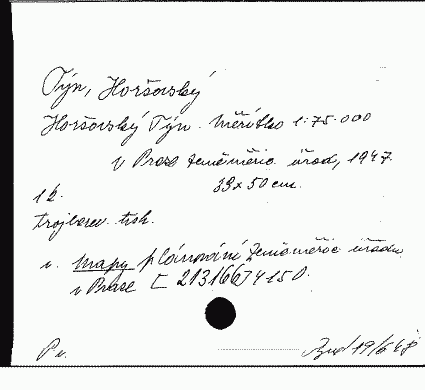 Týn, Horšovský
Horšovský Týn. Měřítko 1:75.000
v Praze Zeměměřic. úřad, 1947.
39 x 50 cm.
1 l.
trojbarev. tisk.
v. mapy plánování Zeměměřic úřadu
v Praze [213166] 4150.
19/6 48